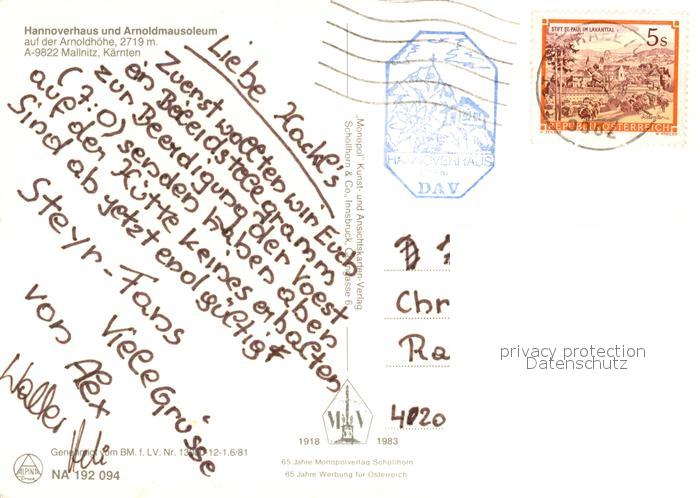 Hannoverhaus und Arnoldmausoleum
auf der Arnoldhöhe, 2719 m.
A-9822 Mallnitz, Kärnten
Liebe Hackl's
Zuerst wollten wir Euch
ein Beileidstelegramm
zur Beerdigung der Voest
(7:0) senden haben aber
auf der Hütte keines erhalten
Sind ab jetzt endgültig
Steyr-Fans
Viele Grüsse
von Alex
Walter
Heli
Genehmigt vom BM. f. LV. Nr. 13 -12-1.6/81
ALPINA
Druck
NA 192 094
„Monopol" Kunst- und Ansichtskarten-Verlag
Schöllhorn & Co., Innsbruck, 6
HANNOVERHAUS
DAV
STIFT ST. PAUL IM LAVANTTAL
5s
REPUBLIK ÖSTERREICH
Chr
Ra
4020
privacy protection
Datenschutz
M V
1918 1983
65 Jahre Monopolverlag Schöllhorn
65 Jahre Werbung für Österreich